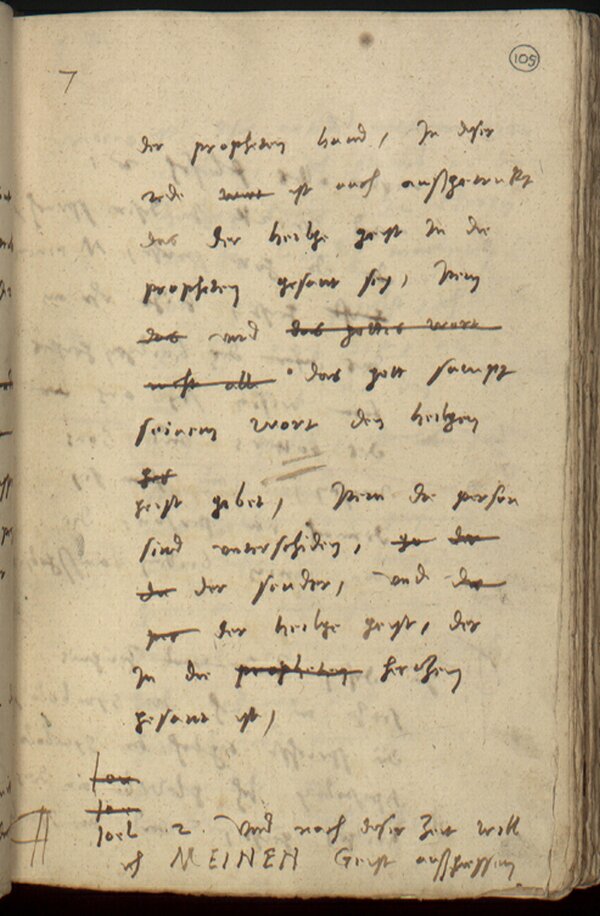 105
7
der propheten hand, In diser
rede wort ist auch außgetrukt
das der heilige geist In die
propheten gesant sey, Item
das und das gottes wort
nicht all das gott sampt
seinem wort den heiligen
geist gibet, Item die person
sind unterscheiden,
der sender, und der
der heilige geist, der
In die propheten hertzen
gesant ist,
Joel 2. Und nach diser Zeit will
ich MEINEN Geist außgiessen